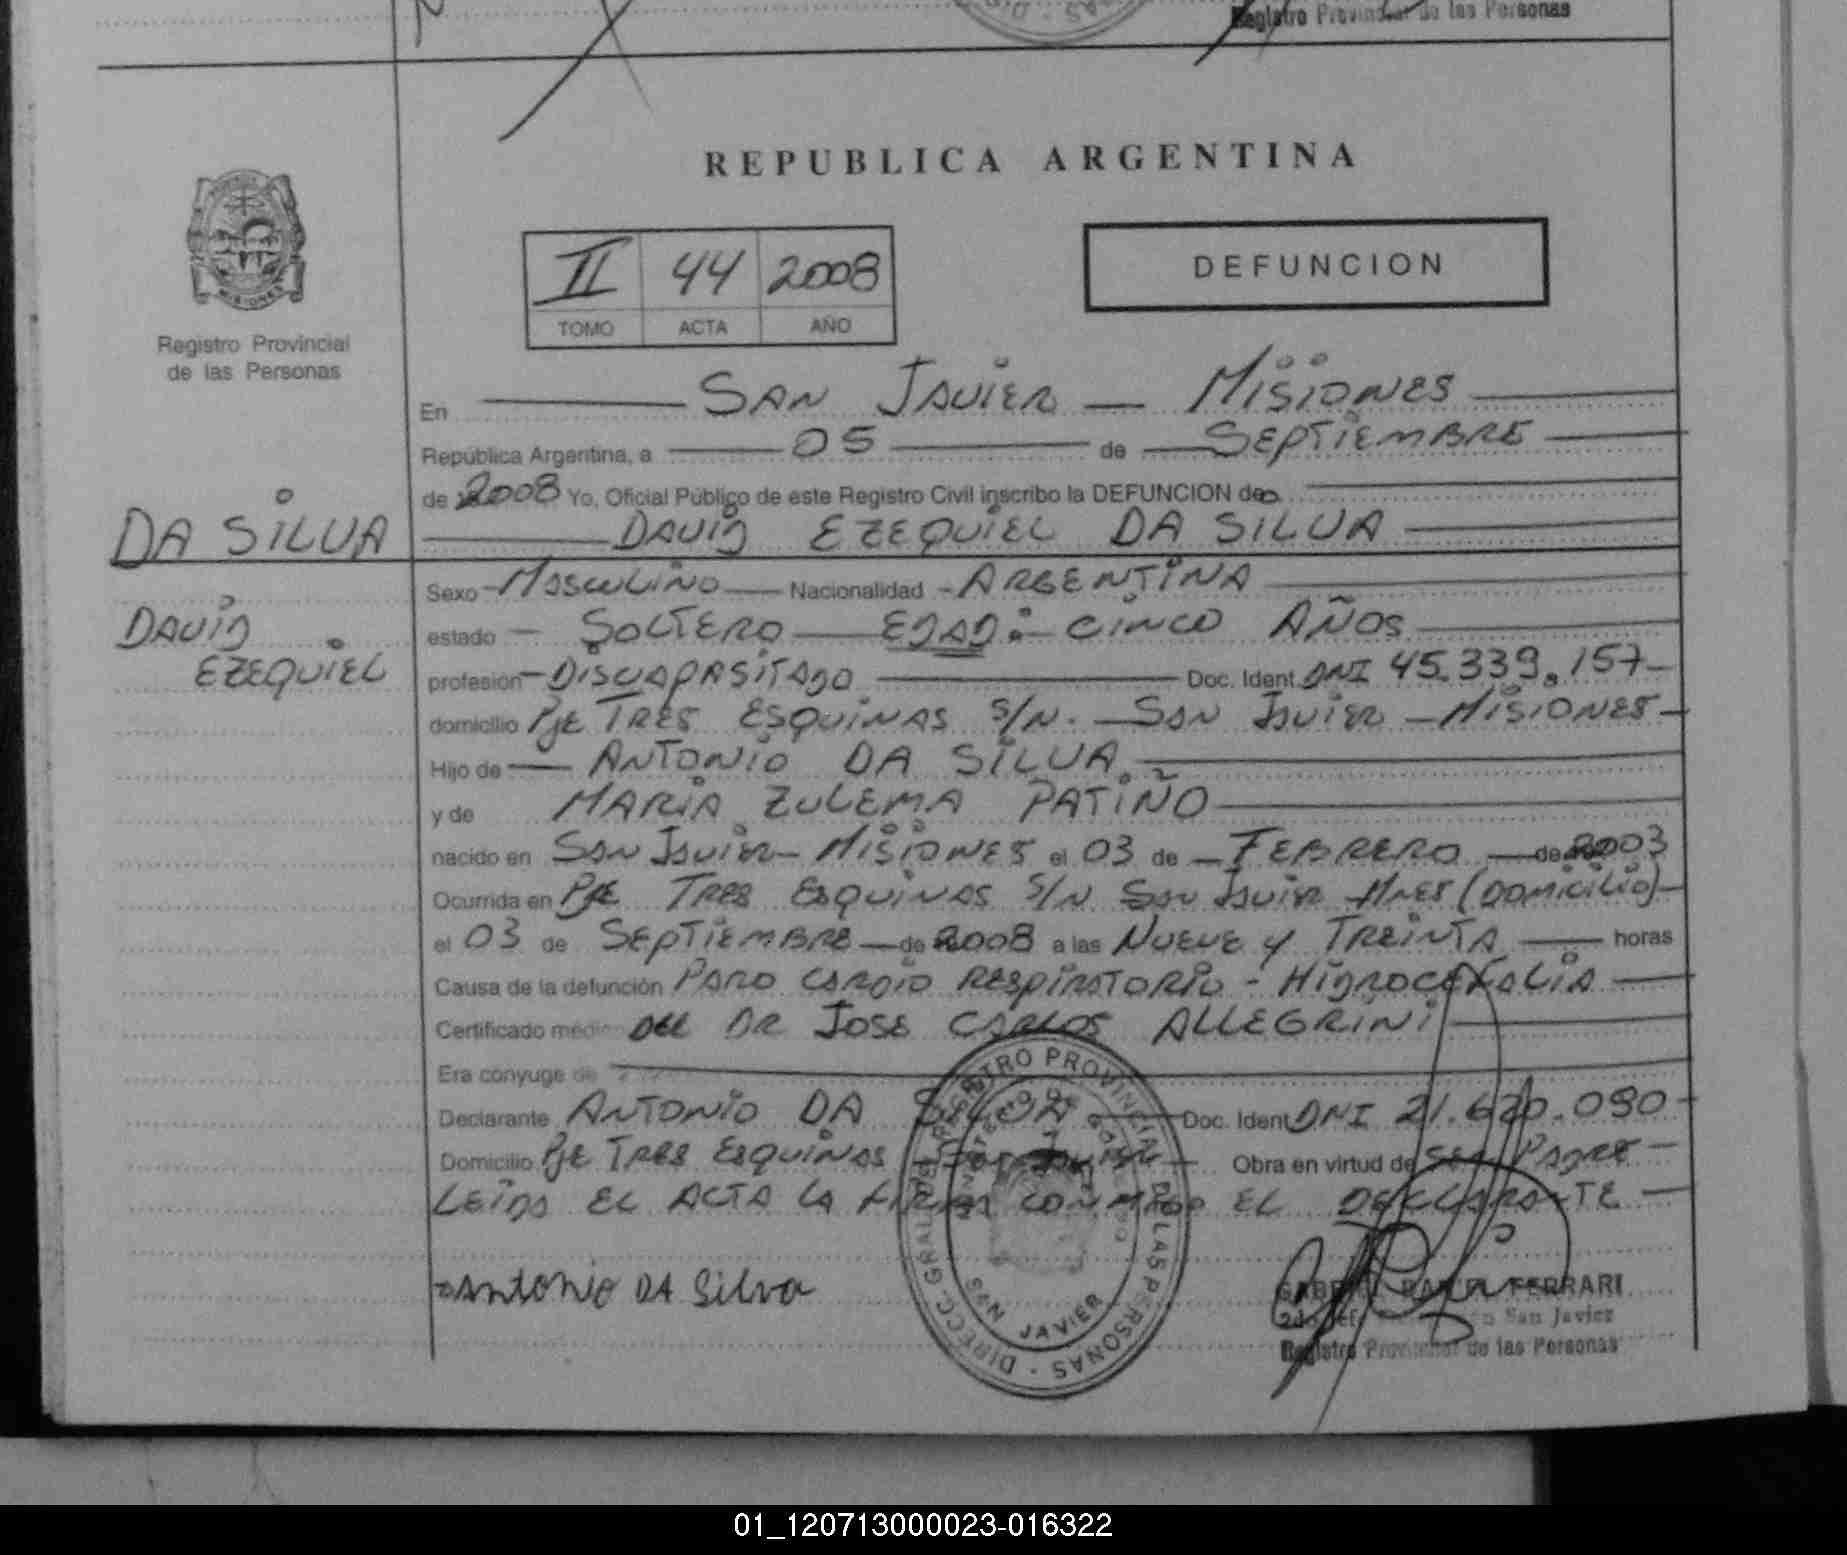 Registro Provincial de las Personas
REPUBLICA ARGENTINA
MISIONES
Registro Provincial
de las Personas
II 44 2008
TOMO ACTA AÑO
DEFUNCION
En SAN JAVIER — MISIONES
República Argentina, a 05 de SEPTIEMBRE
de 2008 Yo, Oficial Público de este Registro Civil inscribo la DEFUNCION de
DA SILVA
DAVID EZEQUIEL DA SILVA
DAVID
EZEQUIEL
Sexo MASCULINO Nacionalidad ARGENTINA
estado SOLTERO — EDAD: CINCO AÑOS
profesión DISCAPASITADO Doc. Ident. DNI 45.339.157
domicilio PJE TRES ESQUINAS S/N. — SAN JAVIER — MISIONES
Hijo de ANTONIO DA SILVA
y de MARIA ZULEMA PATIÑO
nacido en SAN JAVIER — MISIONES el 03 de FEBRERO de 2003
Ocurrida en PJE TRES ESQUINAS S/N SAN JAVIER MNES (DOMICILIO)
el 03 de SEPTIEMBRE de 2008 a las NUEVE Y TREINTA horas
Causa de la defunción PARO CARDIO RESPIRATORIO - HIDROCEFALIA
Certificado DEL DR JOSE CARLOS ALLEGRINI
Era conyuge de
Declarante ANTONIO DA SILVA Doc. Ident DNI 21.620.090
Domicilio PJE TRES ESQUINAS Obra en virtud de SER PADRE
LEIDA EL ACTA LA FIRMA CONMIGO EL DECLARANTE
Antonio DA Silva
DIRECC. GRAL. DEL REGISTRO PROVINCIAL DE LAS PERSONAS
MINISTERIO DE GOBIERNO
SAN JAVIER
GABRIEL FERRARI
San Javier
Registro Provincial de las Personas
01_120713000023-016322